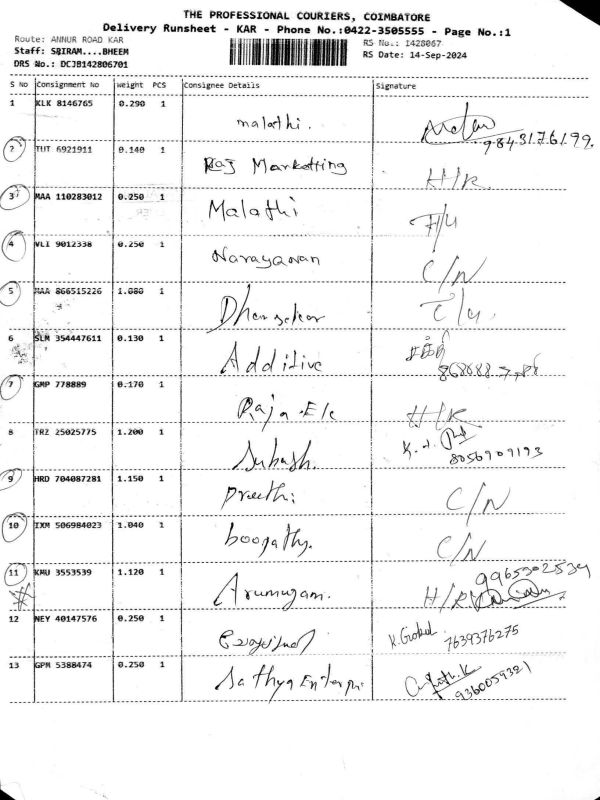 THE PROFESSIONAL COURIERS, COIMBATORE
Delivery Runsheet - KAR - Phone No.:0422-3505555 - Page No.:1
Route: ANNUR ROAD KAR
RS No.: 1428067
Staff: SRIRAM....BHEEM
RS Date: 14-Sep-2024
DRS No.: DCJB142806701
S No Consignment No Weight PCS Consignee Details Signature
1 KLK 8146765 0.290 1 malathi.
9843176199.
2 TUT 6921911 0.140 1 Raj Marketting H/R
3 MAA 110283012 0.250 1 Malathi
4 VLI 9012338 0.250 1 Narayanan C/N
5 MAA 866515226 1.080 1
6 SLM 354447611 0.130 1 Additive
7 GMP 778889 0.170 1 Raja Ele H/R
8 TRZ 25025775 1.200 1 Subash.
8056909193
9 HRD 704087281 1.150 1 Preethi C/N
10 IXM 506984023 1.040 1 boopathy. C/N
11 KMU 3553539 1.120 1 Arumugam. H/R 9965302539
12 NEY 40147576 0.250 1 K. Gokul 7639376275
13 GPM 5388474 0.250 1 Sathya Enterpri
9360059321